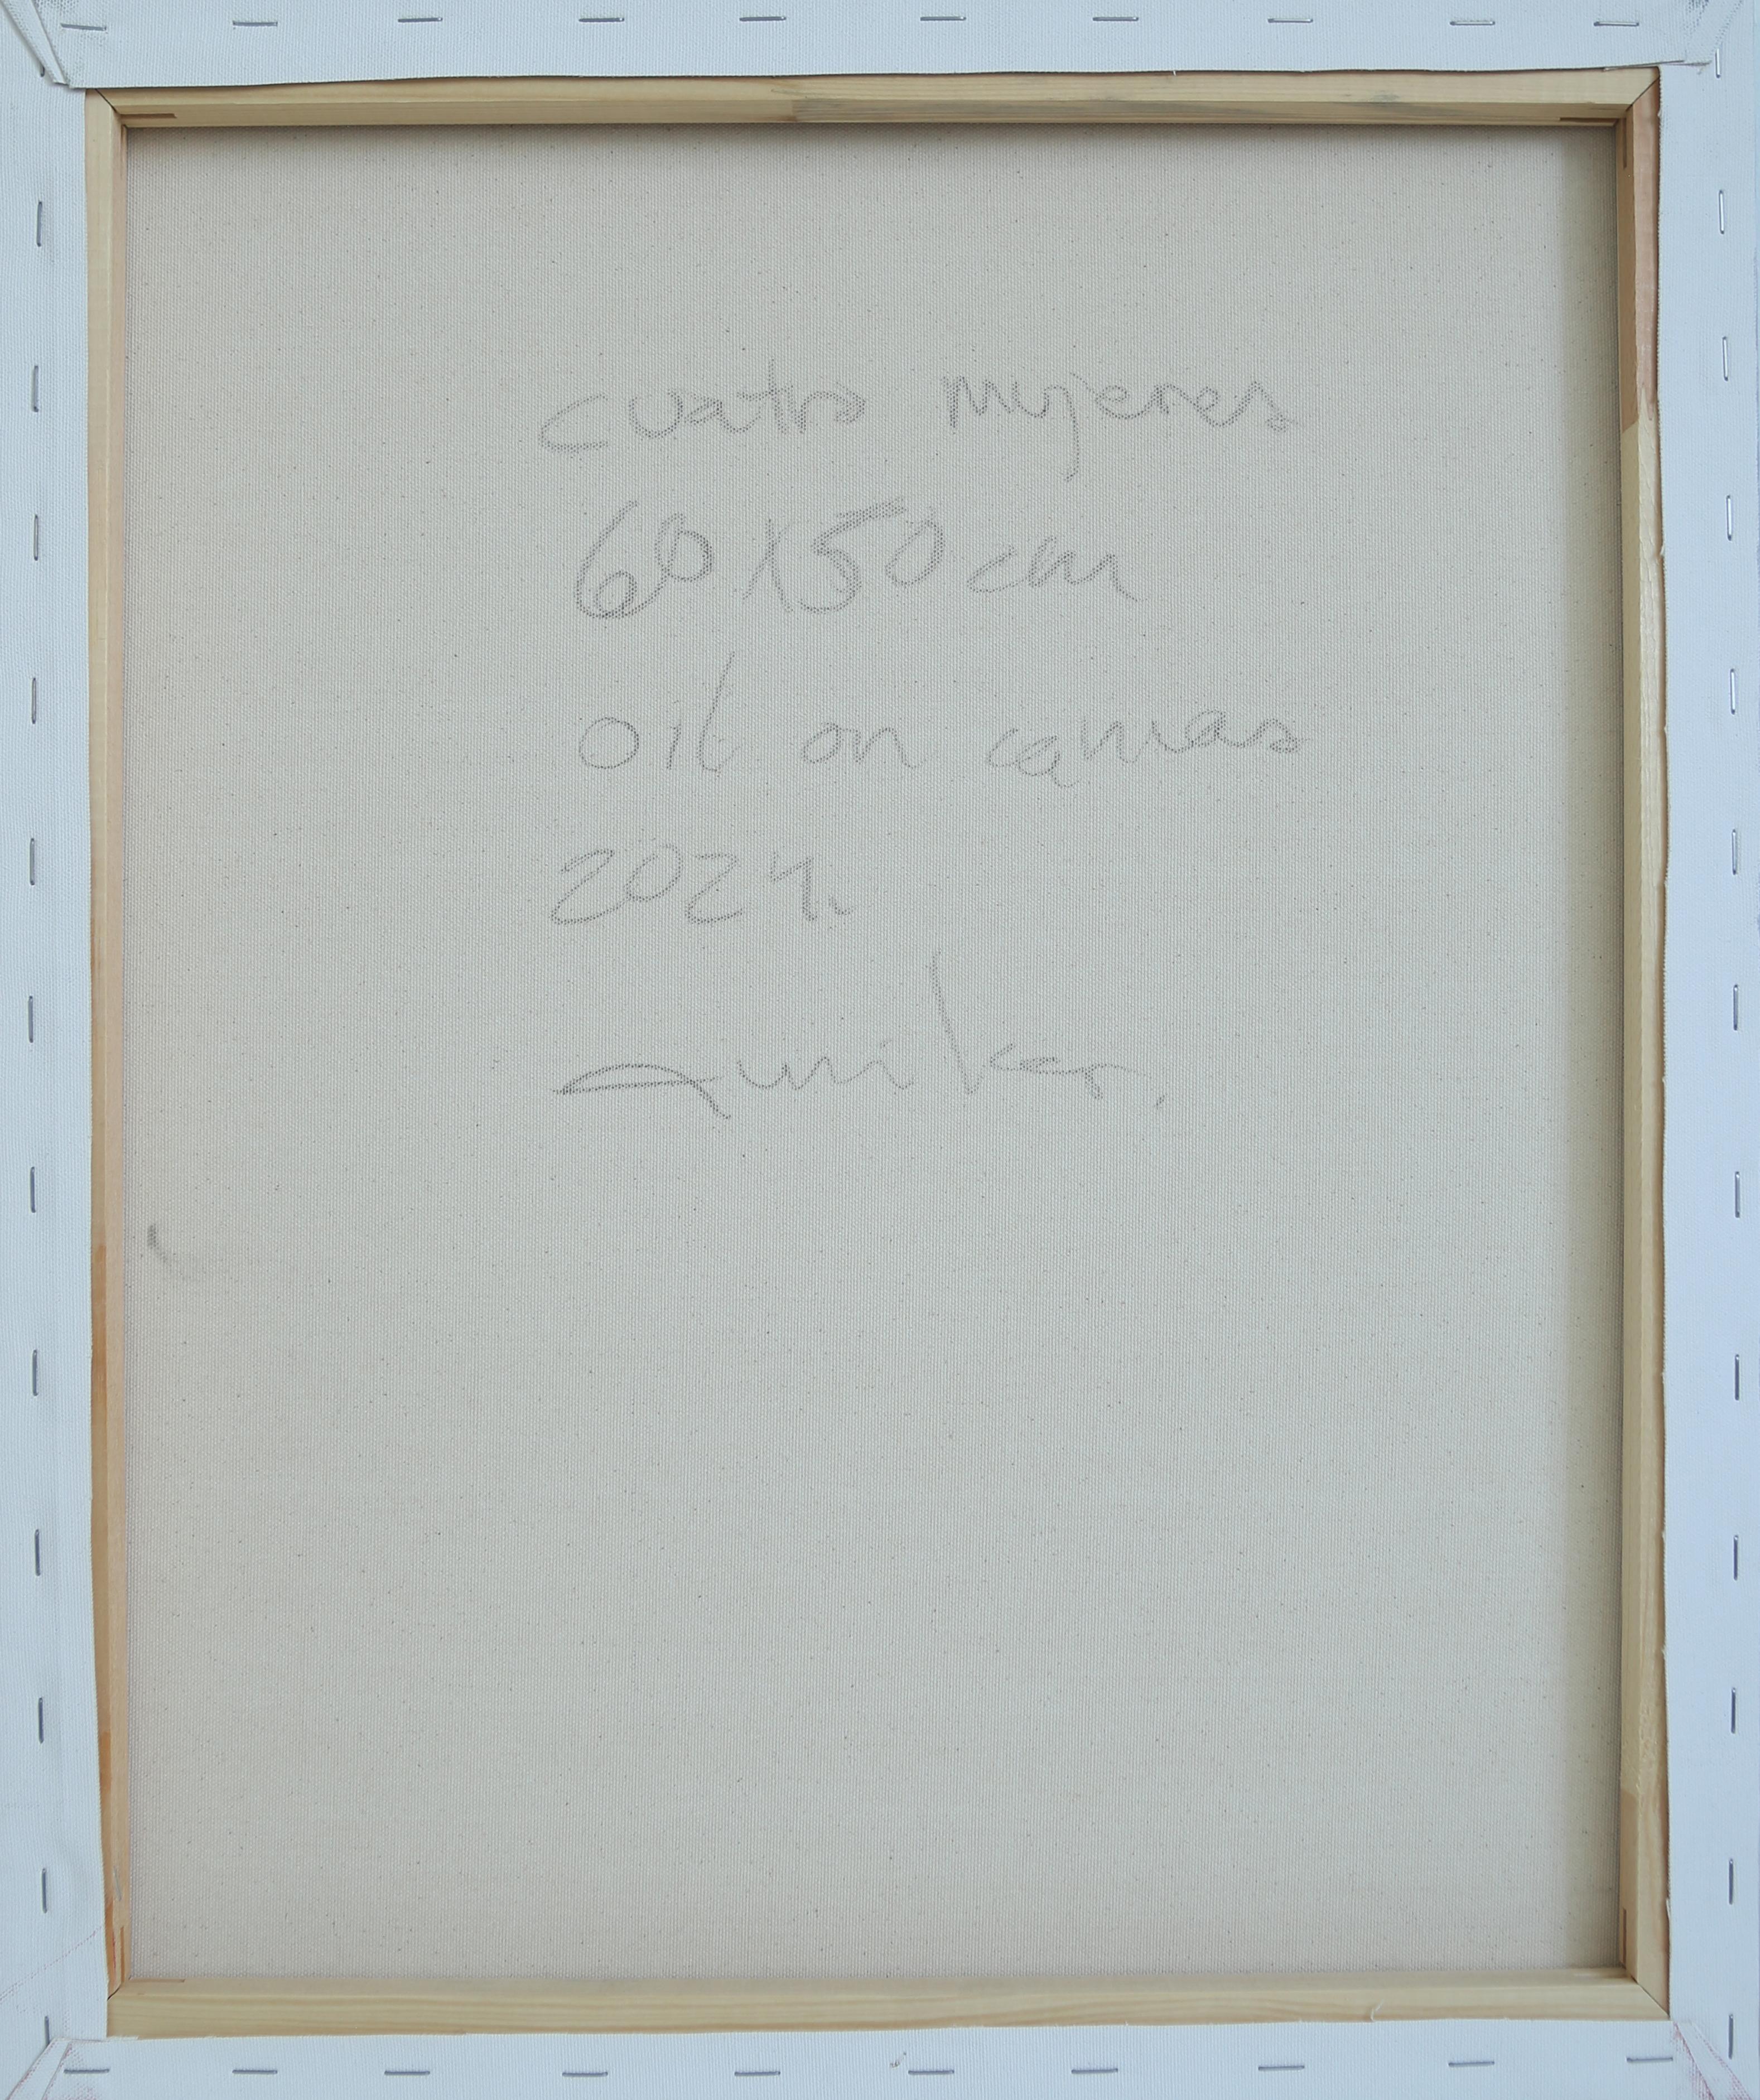 cuatro mujeres
60x50 cm
oil on canvas
2024.